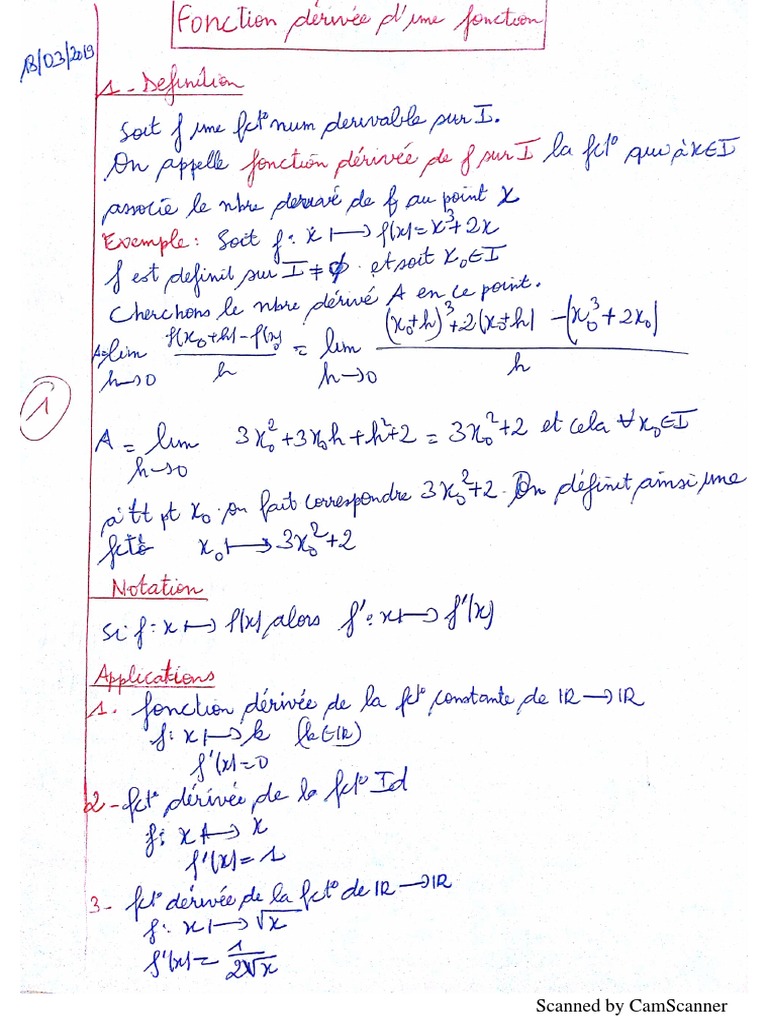 Fonction dérivée d'une fonction
13/03/2019
1 - Definition
Soit f une fct° num derivable sur I.
On appelle fonction dérivée de f sur I la fct° qui à x∈I
associe le nbre derivé de f au point x
Exemple: Soit f: x ⟼ f(x)=x³+2x
f est definit sur I ≠ ∅ et soit x₀∈I
Cherchons le nbre dérivé A en ce point.
A = lim h→0 (f(x₀+h)-f(x₀))/h = lim h→0 ((x₀+h)³+2(x₀+h) - (x₀³+2x₀))/h
1
A = lim h→0 3x₀²+3x₀h+h²+2 = 3x₀²+2 et cela ∀x₀∈I
à tt pt x₀ on fait correspondre 3x₀²+2. On définit ainsi une
fct° x₀ ⟼ 3x₀²+2
Notation
Si f: x ⟼ f(x) alors f': x ⟼ f'(x)
Applications
1. fonction dérivée de la fct° constante de IR → IR
f: x ⟼ k (k∈IR)
f'(x)=0
2 - fct° dérivée de la fct° Id
f: x ⟼ x
f'(x)= 1
3 - fct° dérivée de la fct° de IR → IR
f: x ⟼ √x
f'(x) = 1/(2√x)
Scanned by CamScanner